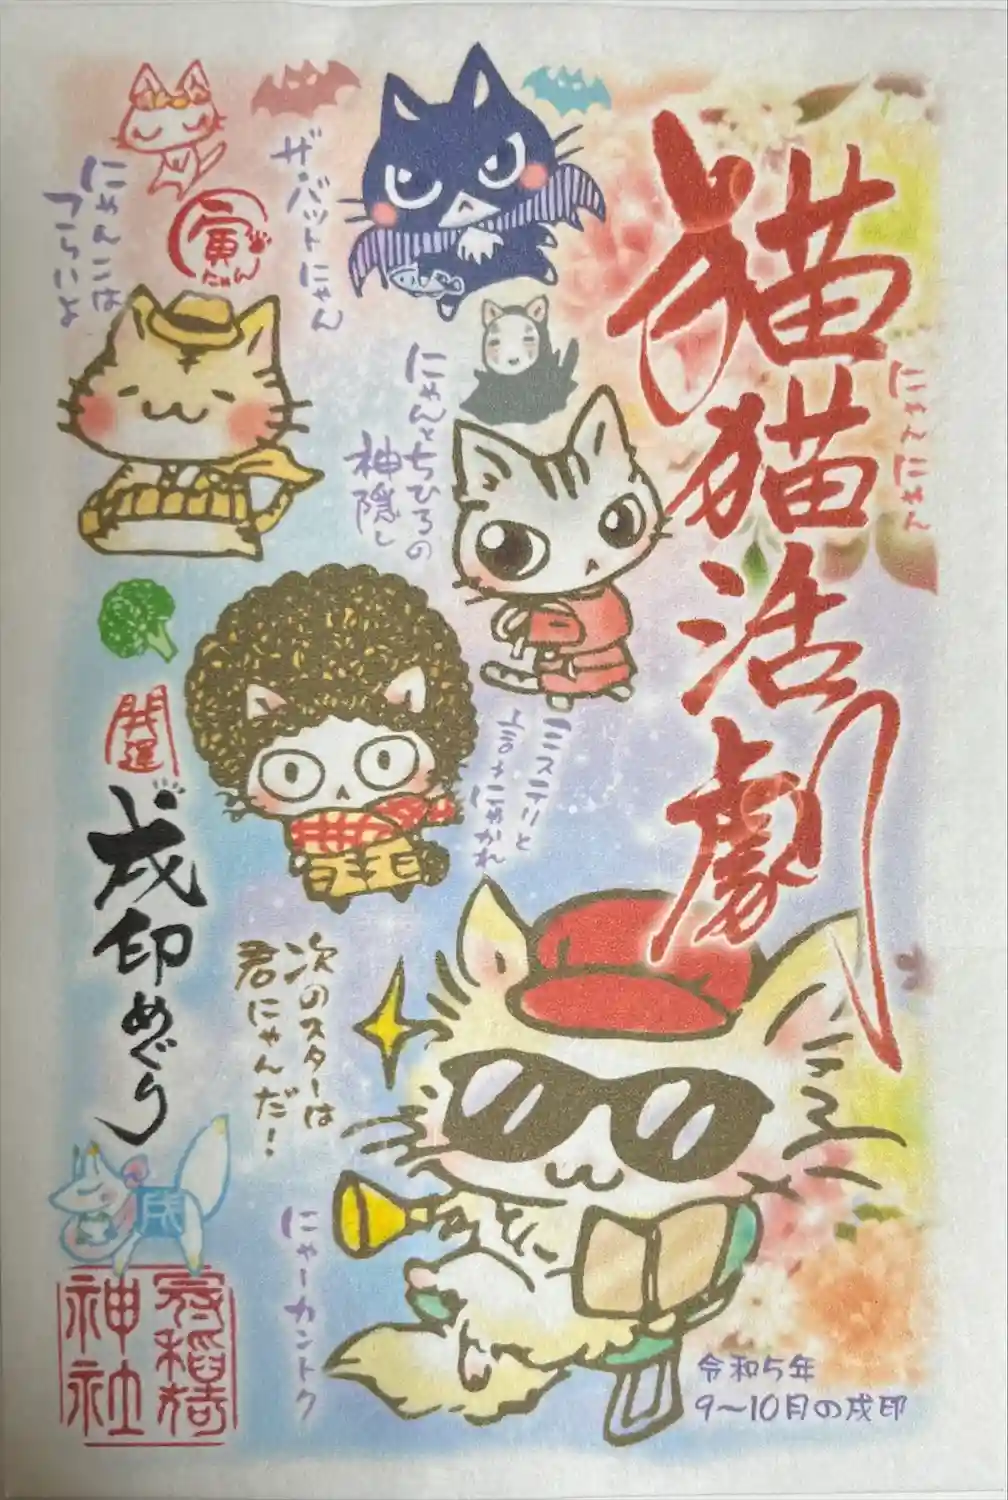 猫猫活劇
にゃごにゃん
ザ・バットにゃん
にゃんこは
つらいよ
寅
にゃん
にゃんとちひろの
神隠し
ミステリと
言うにゃかれ
開運
戌印めぐり
次のスターは
君にゃんだ!
戌
にゃーカントク
神社
令和5年
9～10月の戌印